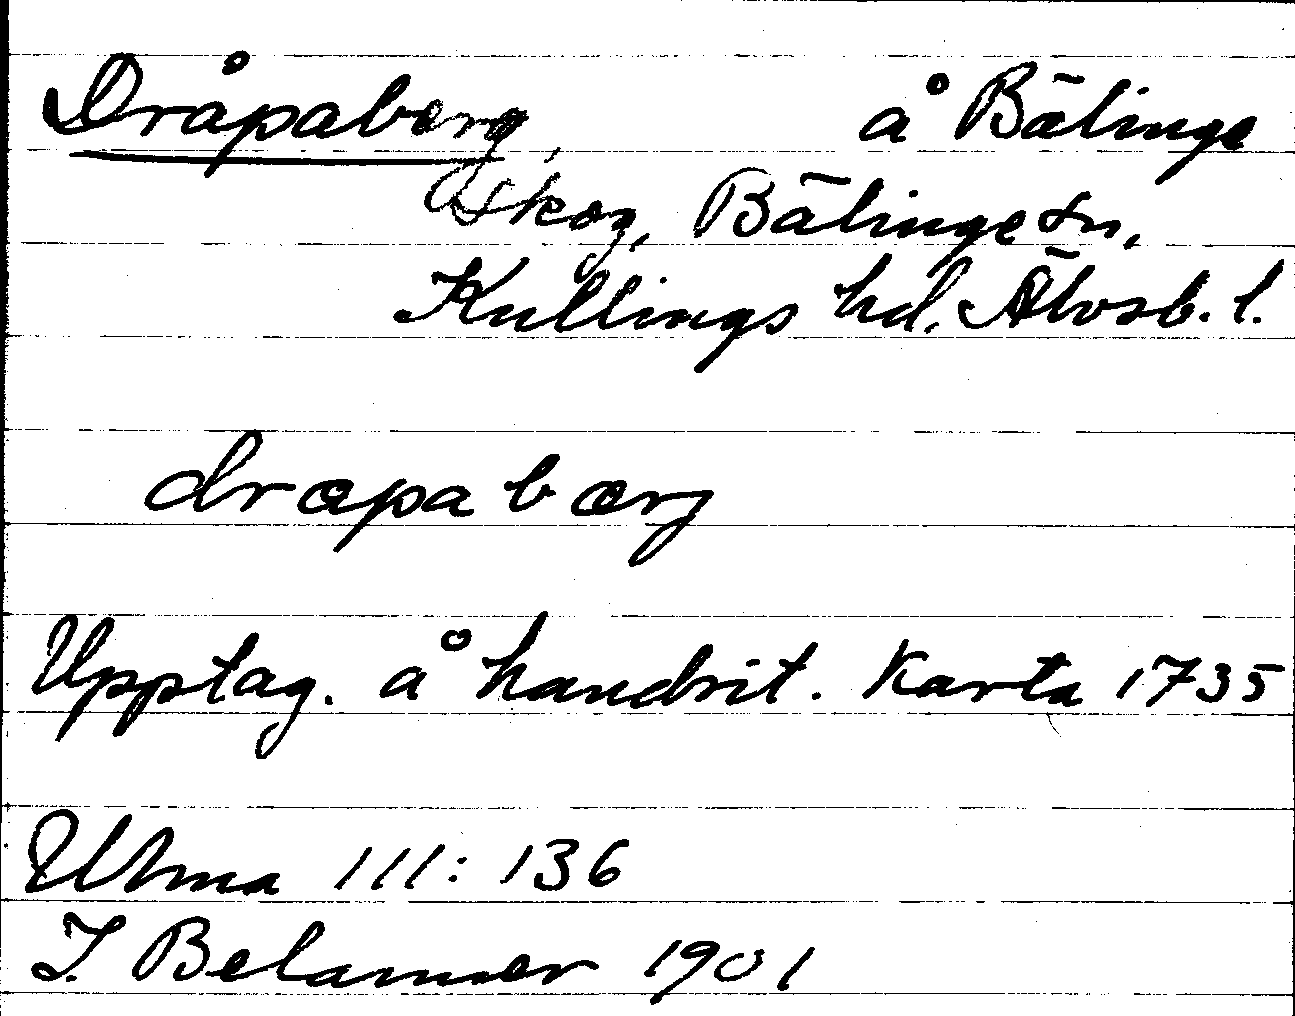 Dråpaberg, å Bälinge
Skog, Bälinge sn,
Kullings hd. Älvsb. l.
dræpabærj
Upptag. å handrit. Karta 1735
Ulma 111: 136
I. Belanner 1901